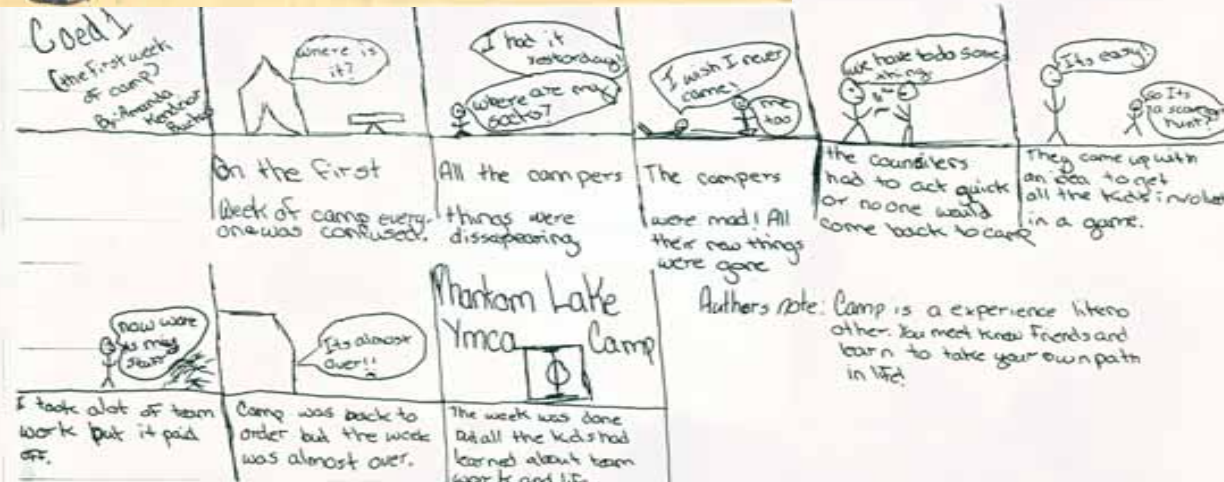 Coed 1
(the first week
of camp)
By: Amanda
where is
it?
On the first
week of camp every-
one was confused.
I had it
yesterday!
where are my
socks?
All the campers
things were
dissapearing
I wish I never
came!
me
too
The campers
were mad! All
their new things
were gone
we have to do some
thing.
the counsilers
had to act quick
or no one would
come back to camp
Its easy!
So Its
a scavenger
hunt?
They came up with
an idea to get
all the kids involved
in a game.
now ware
is my
stuff
I took alot of team
work but it paid
off.
Its almost
over!!
Camp was back to
order but the week
was almost over.
Phantom Lake
Ymca Camp
The week was done
but all the kids had
learned about team
work and life
Authors note: Camp is a experience like no
other. You meet knew friends and
learn to take your own path
in life!